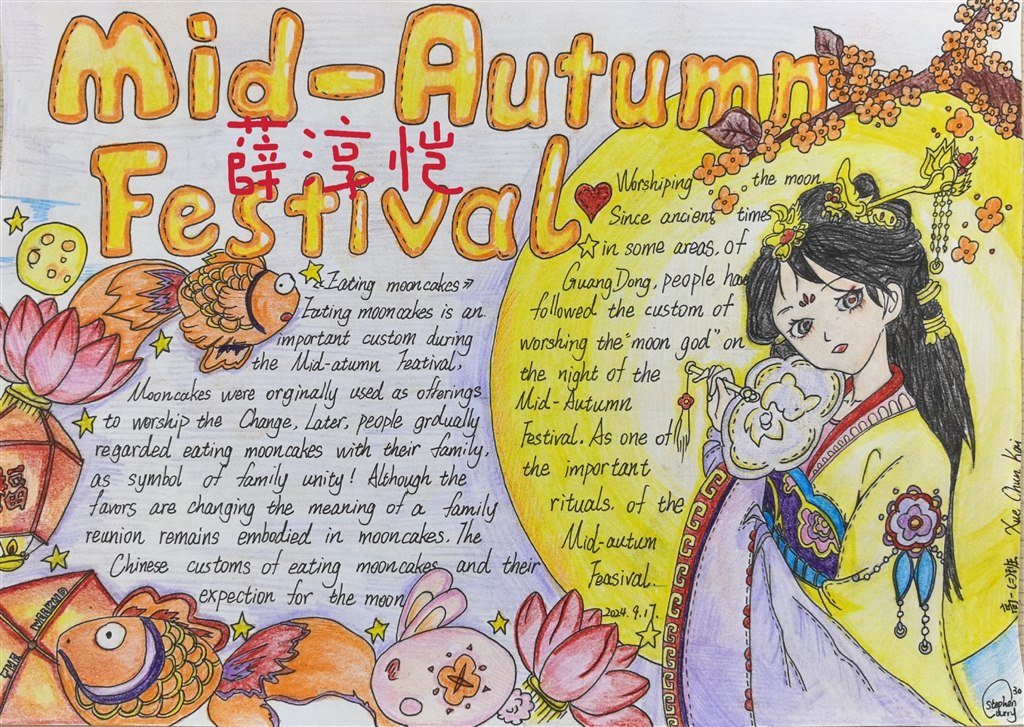 Mid-Autumn
薛淳恺
Festival
Worshiping the moon
Since ancient times
in some areas, of
GuangDong, people have
followed the custom of
worshing the "moon god" on
the night of the
Mid-Autumn
Festival. As one of
the important
rituals, of the
Mid-autum
Feasival.
2024.9.17.
《Eating mooncakes》
Eating mooncakes is an
important custom during
the Mid-atumn Featival,
Mooncakes were orginally used as offerings
to worship the Change, Later, people grdually
regarded eating mooncakes with their family,
as symbol of family unity! Although the
favors are changing the meaning of a family
reunion remains embodied in mooncakes. The
Chinese customs of eating mooncakes and their
expection for the moon
福
Xue Chun Kai
Stephen
Curry
30